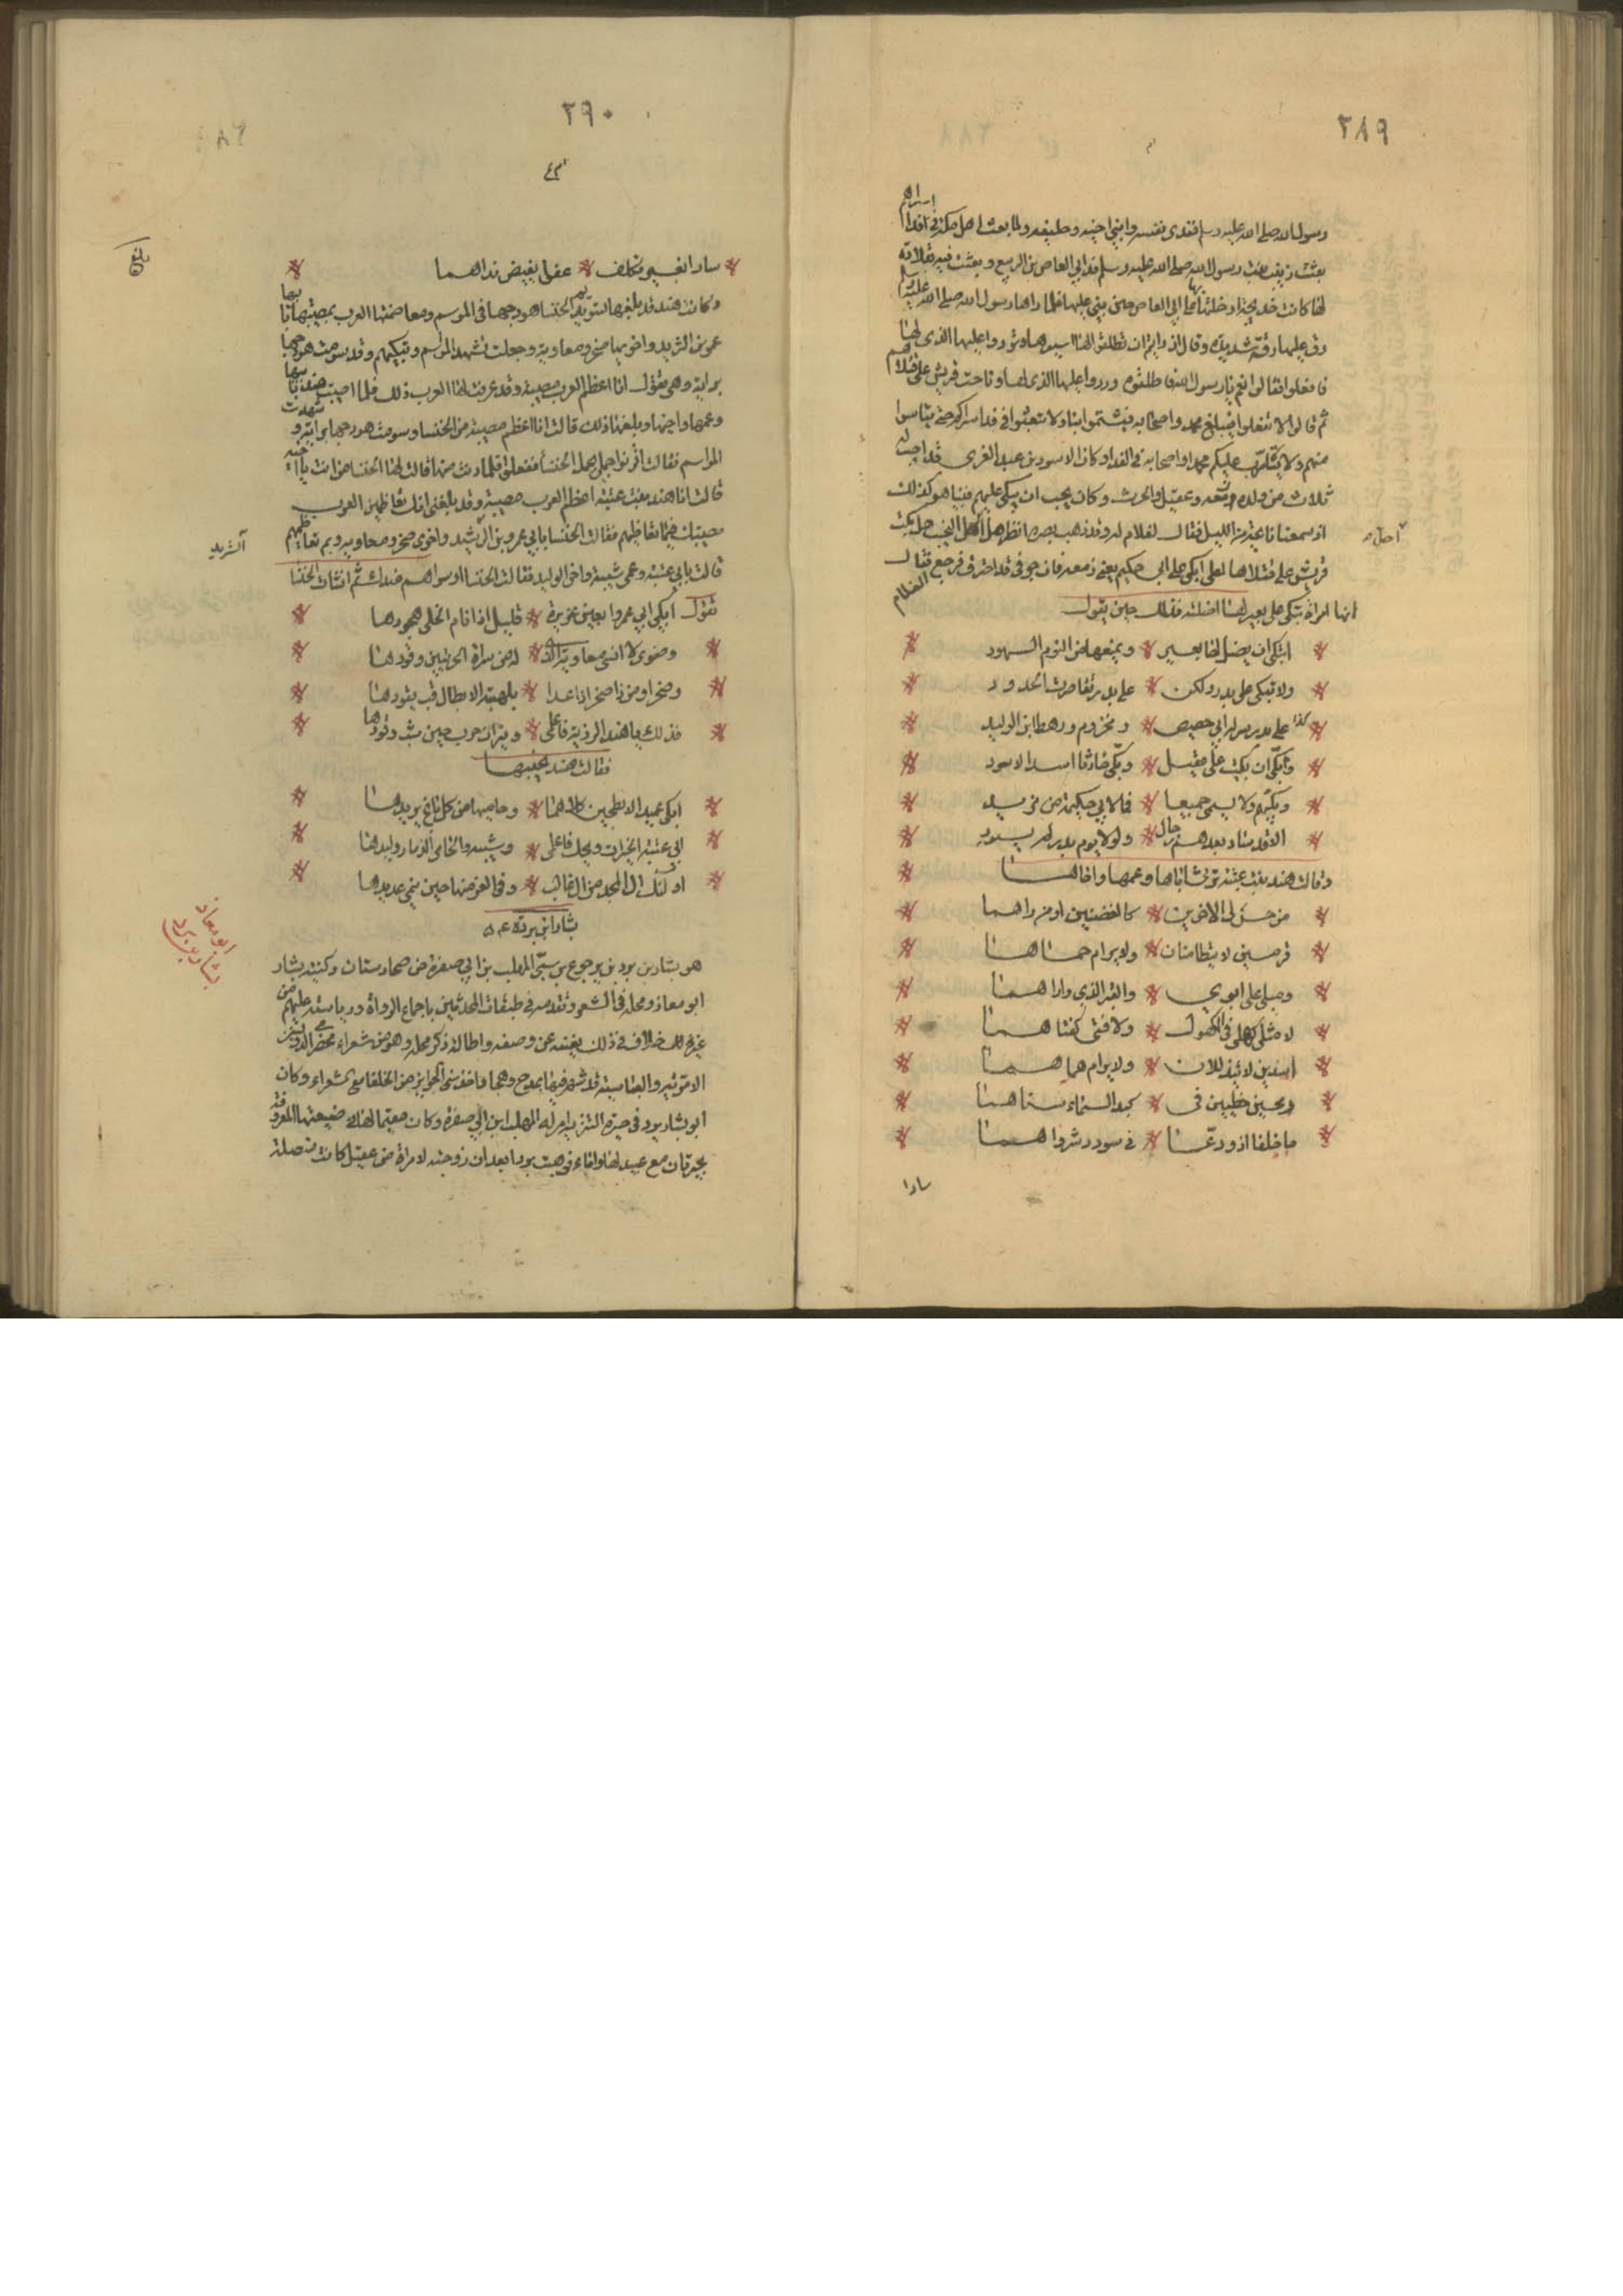 ٢٨٩
رسول الله صلى الله عليه وسلم ففدى نفسه وابني اخيه وحليفه ولما بعث اهل مكة في افدا اسراهم
بعثت زينب بنت رسول الله صلى الله عليه وسلم فدا ابي العاص بن الربيع وبعثت فيه بقلادة
لها كانت خديجة ادخلتها بها على ابي العاص حين بنى عليها فلما راها رسول الله صلى الله عليه وسلم
رق عليها رقة شديدة وقال ان رايتم ان تطلقوا لها اسيرها وتردوا عليها الذي لها
فافعلوا فقالوا نعم يا رسول الله فاطلقوه وردوا عليها الذي لها وناحت قريش على قتلاهم
ثم قالوا لا تفعلوا فيبلغ محمد واصحابه فيشتموا بنا ولا تبعثوا في فدا اسراكم حتى يتاسوا
منهم ولا يتأرب عليكم محمد واصحابه في الفدا وكان الاسود بن عبد الغرى قد اصيب له
ثلاث من ولده زمعه وعقيل والحرث وكان يحب ان يبكى عليهم فبينا هو كذلك
اذ سمع نايحة من الليل فقال لغلام له وقد ذهب بصره انظر هل احل النحيب هل بكت
احل ص
قريش على قتلاها لعلى ابكى على ابي حكيم يعني زمعه فان جوفى قد احترق فرجع فقال الغلام
انها امراة تبكى على بعير لها اضلته فذلك حين يقول
اتبكى ان يضل لها بعير * ويمنعها من النوم السهود
ولا تبكى على بدر ولكن * على بدر تقاصرت الخدود
كذا على بدر سراه ابي حصيص * ومخزوم ورهط ابى الوليد
وابكى ان بكيت على عقيل * وبكى حارثا اسد الاسود
وبكيهم ولا يسمى جميعا * فما لابي حكيمة من نديد
الا قد ساد بعدهم رجال * ولولا يوم بدر لم يسودوا
وقالت هند بنت عتبة ترثى اباها وعمها واخاها
من حس لى الاخوين * كالغصنين او من راهما
قرمين لا يتظالمان * ولا يرام حماهما
ويلى على ابوي * والقبر الذي واراهما
لا مثل كهلى فى الكهول * ولا فتى كفتاهما
اسدين لا يتذللان * ولا يرام حماهما
رمحين خطيين فى * كبد السماء سناهما
ما خلفا اذ ودعا * فى سودد شرواهما
سادا
٢٩٠
سادا بغير تكلف * عفوا يفيض نداهما
وكانت هند قد بلغها تسويم الخنسا هودجها فى الموسم ومعاظمتها العرب بمصيبتها بابيها
عمرو بن الشريد واخويها صخر ومعاوية وجعلت تشهد الموسم وتبكيهم وقد سومت هودجها
براية وهى تقول انا اعظم العرب مصيبة وقد عرفت لها العرب ذلك فلما اصيبت هند بابيها
وعمها واخيها وبلغها ذلك قالت انا اعظم مصيبة من الخنسا وسومت هودجها براية وشهدت
المواسم فقالت اقرنوا جملى بجمل الخنسا ففعلوا فلما دنت منها قالت لها الخنسا من انت يا اخيه
قالت انا هند بنت عتبة اعظم العرب مصيبة وقد بلغنى انك تعاظمين العرب
مصيبتك فبما تعاظمهم فقالت الخنسا بابي عمرو بن الشريد واخوى صخر ومعاويه وبم تعاظميهم
الشريد
قالت بابي عتبة وعمى شيبة واخى الوليد فقالت الخنسا اوسواهم عندك ثم انشات الخنسا
تقول ابكى ابي عمروا بعين غزيرة * قليل اذا نام الخلى هجودها
وصنوى لا انسى معاوية الذى * له من سراة الحرتين وفودها
وصخرا ومن ذا صخر اذا غدا * بسلهبة الابطال قب يقودها
فذلك يا هند الرزية فاعلمى * ونيران حرب حين شب وقودها
فقالت هند تجيبها
ابكى عميد الابطحين كلاهما * وحاميها من كل باغ يريدها
ابى عتبة الخيرات ويحك فاعلمى * وشيبه والحامى الذمار وليدها
اولئك آل المجد من آل غالب * وفى العز منها حين ينمى عديدها
بشار ابن برد
هو بشار بن برد بن يرجوخ من سبى المهلب بن ابي صفرة من طخارستان وكنيته بشار
ابو معاذ بشار بن برد
ابو معاذ ومحله فى الشعر وتقدمه فى طبقات المحدثين باجماع الرواة ورياسته عليهم من
غير اختلاف فى ذلك يغنيه عن وصفه واطالة ذكر محله وهو من شعراء مخضرمى الدولتين
الاموية والعباسية قد شهر فيهما بمدح وهجا واخذ سنى الجوايز من الخلفا مع الشعراء وكان
ابو بشار برد فى خيرة القشيرية امراة المهلب ابن ابي صفرة وكان مقيما لها فى ضيعتها المعروفة
بخيرتان مع عبيد لها واماء فوهبت بردا بعد ان زوجته لامراة من عقيل كانت متصلة